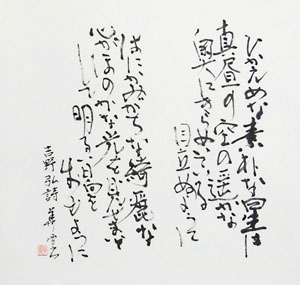 ひかえめな素朴な星は
真昼の空の遥かな
奥にきらめいている
目立ぬように
はにかみがちな綺麗な
心がほのかな光を見せまいと
して明るい日向を
歩むように
吉野弘詩